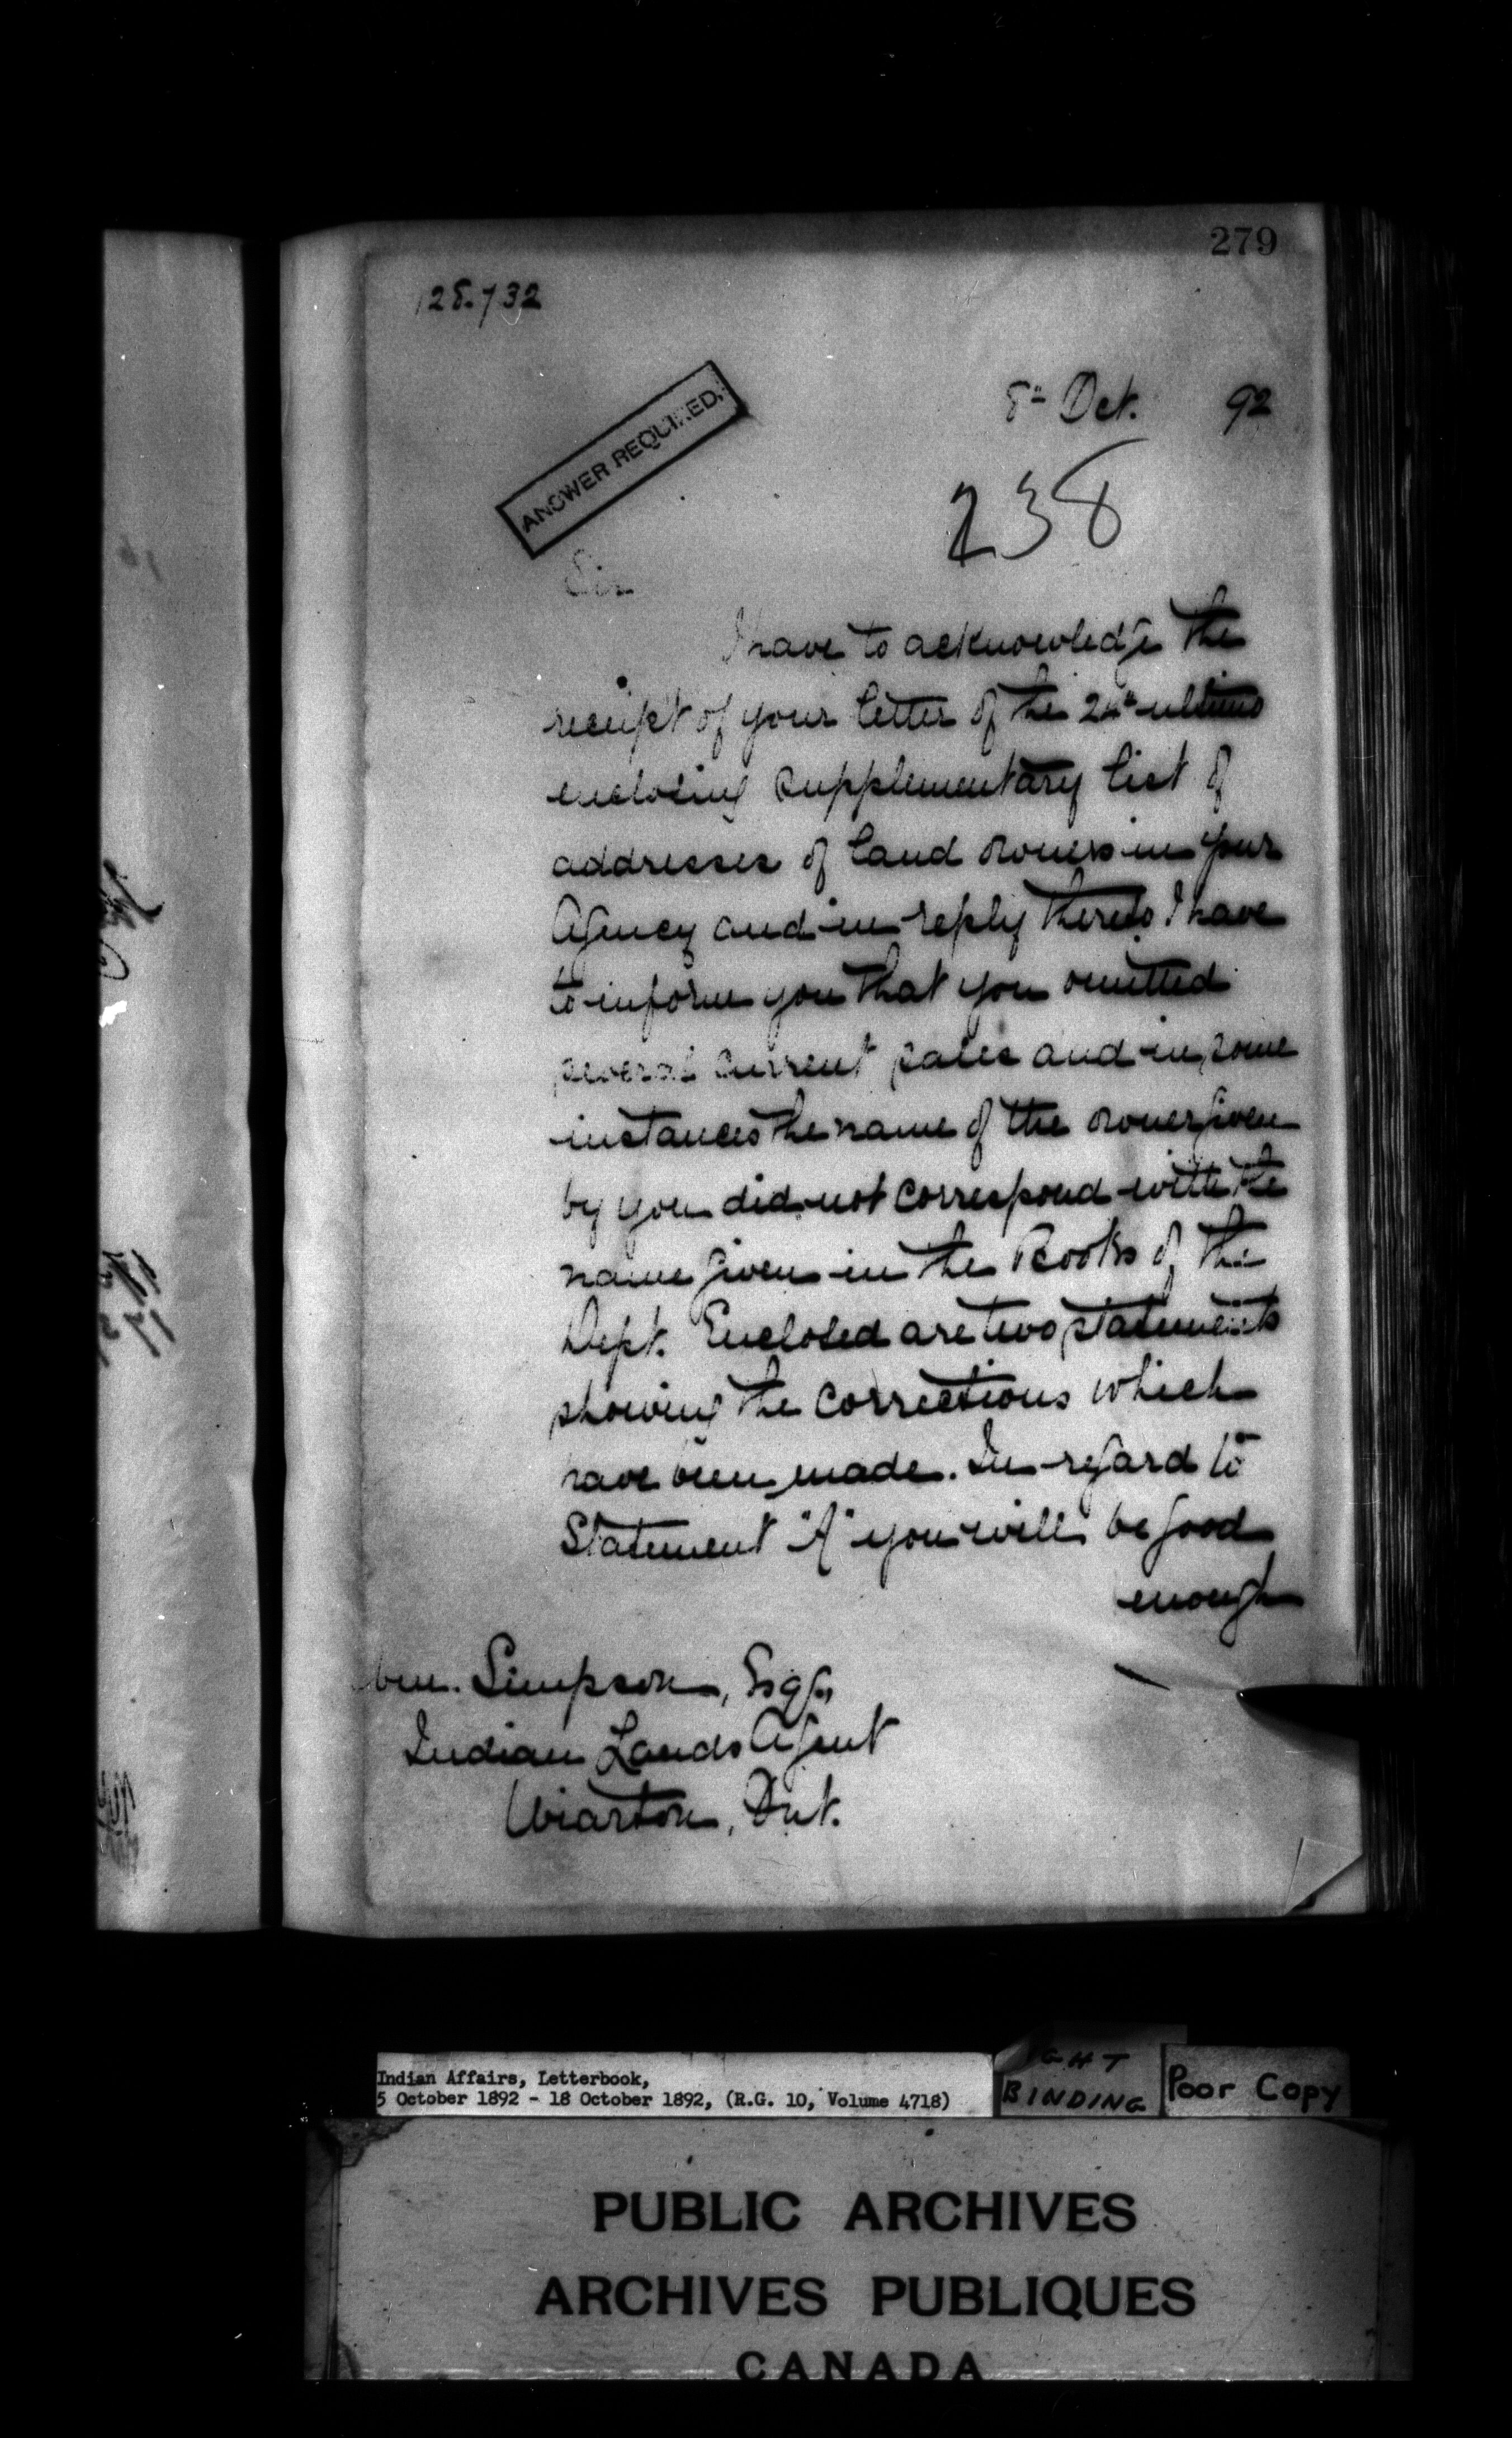 279
128.732
ANSWER REQUIRED.
8th Oct. 92
238
Sir
I have to acknowledge the
receipt of your letter of the 24th ultimo
enclosing supplementary list of
addresses of land owners in your
Agency and in reply thereto I have
to inform you that you omitted
several current sales and in some
instances the name of the owner given
by you did not correspond with the
name given in the Books of the
Dept. Enclosed are two statements
showing the corrections which
have been made. In regard to
Statement "A" you will be good
enough
Wm. Simpson, Esq.,
Indian Lands Agent
Wiarton, Ont.
Indian Affairs, Letterbook,
5 October 1892 - 18 October 1892, (R.G. 10, Volume 4718)
BINDING
Poor Copy
PUBLIC ARCHIVES
ARCHIVES PUBLIQUES
CANADA